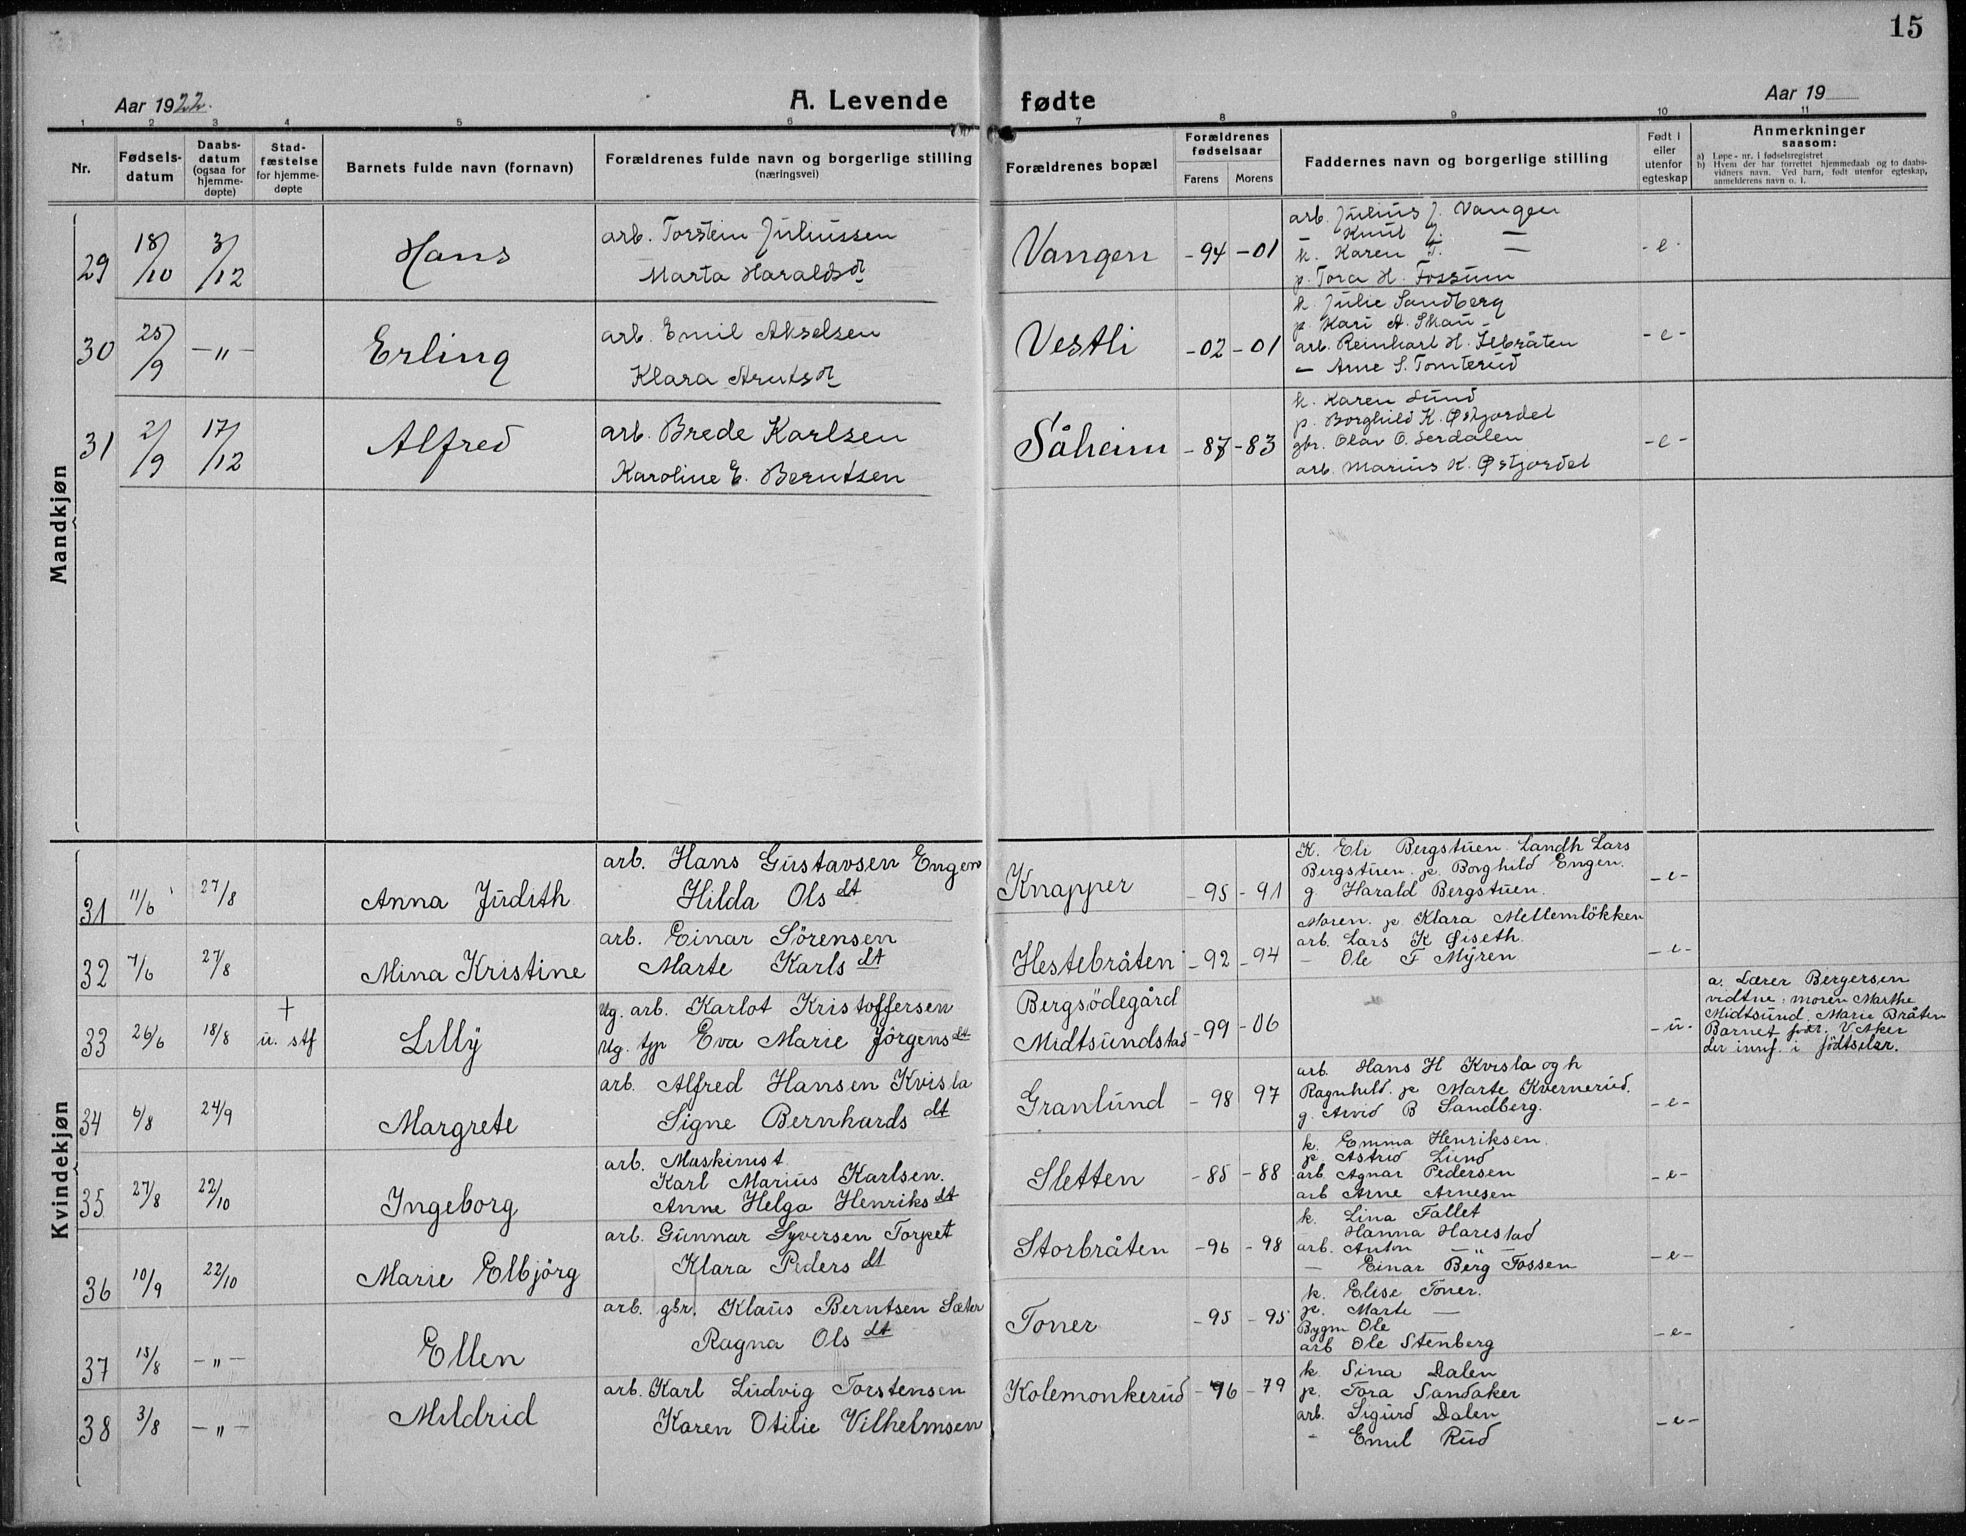 15
Aar 1922. A. Levende fødte Aar 19
1 2 3 4 5 6 7 8 9 10 11
Nr. Fødsels-datum Daabs-datum (ogsaa for hjemme-døpte) Stad-fæstelse for hjemme-døpte Barnets fulde navn (fornavn) Forældrenes fulde navn og borgerlige stilling (næringsvei) Forældrenes bopæl Forældrenes fødselsaar Farens Morens Faddernes navn og borgerlige stilling Født i eller utenfor egteskap Anmerkninger saasom:
a) Løpe-nr. i fødselsregistret
b) Hvem der har forrettet hjemmedaab og to daabs-vidners navn. Ved barn, født utenfor egteskap, anmelderens navn o. l.
Mandkjøn
29 18/10 3/12 Hans
arb. Torstein Juliussen
Marta Haraldsdt
Vangen -94 -01
arb. Julius J. Vangen
— Knut J. —
k. Karen T. —
p. Tora H. Fossum
-e-
30 25/9 —"— Erling
arb. Emil Akselsen
Klara Arntsdt
Vestli -02 -01
k. Julie Sandberg
p. Kari A. Skau
arb. Reinhart H. Ilbråten
— Arne S. Tomterud
-e-
31 2/9 17/12 Alfred
arb. Brede Karlsen
Karoline E. Berntsen
Såheim -87 -83
k. Karen Lund
p. Borghild K. Østjordet
gbr. Olav O. Serdalen
arb. Marius K. Østjordet
-e-
Kvindekjøn
31 11/6 27/8 Anna Judith
arb. Hans Gustavsen Engen
Hilda Olsdt
Knapper -95 -91
K. Eli Bergstuen. Landh Lars
Bergstuen. p. Borghild Engen.
g Harald Bergstuen.
-e-
32 7/6 27/8 Mina Kristine
arb. Einar Sörensen
Marte Karlsdt
Hestebråten -92 -94
Moren. p. Klara Mellemlökken
arb. Lars K Øiseth.
— Ole F Myren
-e-
33 26/6 18/8 † u. stf Lilly
Ug. arb. Karlot Kristoffersen
Ug. tjp Eva Marie Jörgensdt
Bergsödegård
Midtsundstad -99 -06
-u-
a. Lærer Bergersen
vidtne: moren Marthe
Midtsund. Marie Bråten
Barnet födt. V. Aker
der innf. i födtselsr.
34 6/8 24/9 Margrete
arb. Alfred Hansen Kvisla
Signe Bernhardsdt
Granlund -98 97
arb. Hans H Kvisla og h
Ragnhild. p Marte Kvernerud.
g. Arvid B Sandberg.
-e-
35 27/8 22/10 Ingeborg
arb. Maskinist
Karl Marius Karlsen.
Anne Helga Henriksdt
Sletten -85 -88
k. Emma Henriksen.
p. Astrid Lund
arb. Agnar Pedersen
arb Arne Arnesen
-e-
36 10/9 22/10 Marie Elbjörg
arb. Gunnar Syversen Torpet
Klara Pedersdt
Storbråten -96 -98
k. Lina Fallet
— Hanna Harestad
arb. Anton —"—
— Einar Berg Fossen
-e-
37 15/8 —"— Ellen
arb. gbr. Klaus Berntsen Sæter
Ragna Olsdt
Toner -95 -95
k. Elise Toner.
p. Marte —
Bygm Ole
arb Ole Stenberg
-e-
38 3/8 —"— Mildrid
arb. Karl Ludvig Torstensen
Karen Otilie Vilhelmsen
Kolemonkerud -76 -79
k Sina Dalen
p. Tora Sandaker
arb. Sigurd Dalen
— Emil Rud
-e-